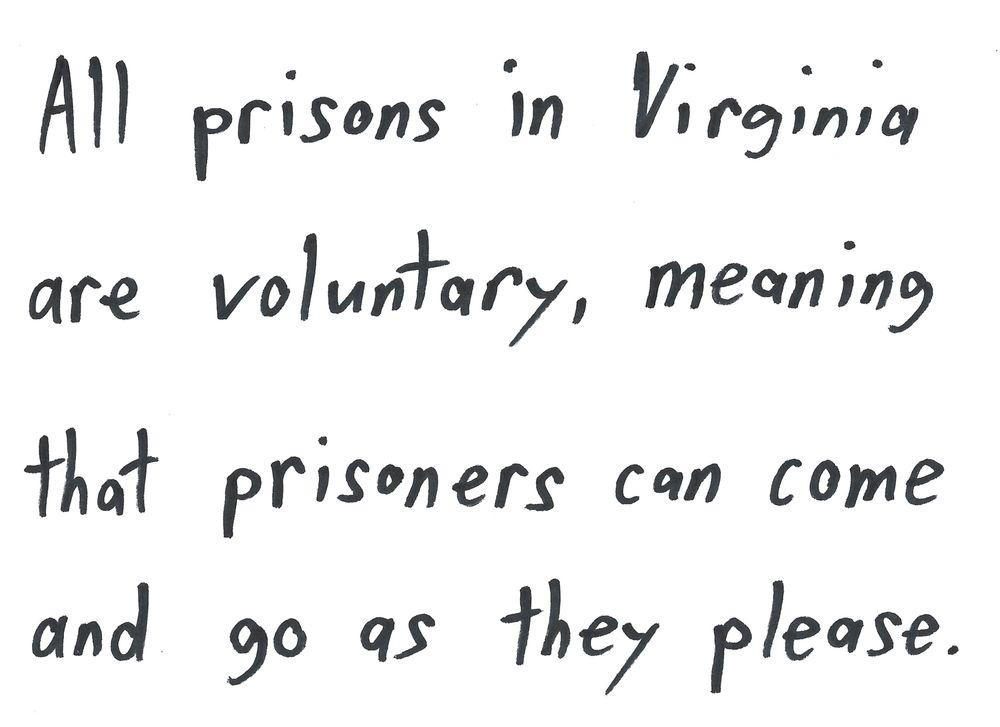 All prisons in Virginia
are voluntary, meaning
that prisoners can come
and go as they please.